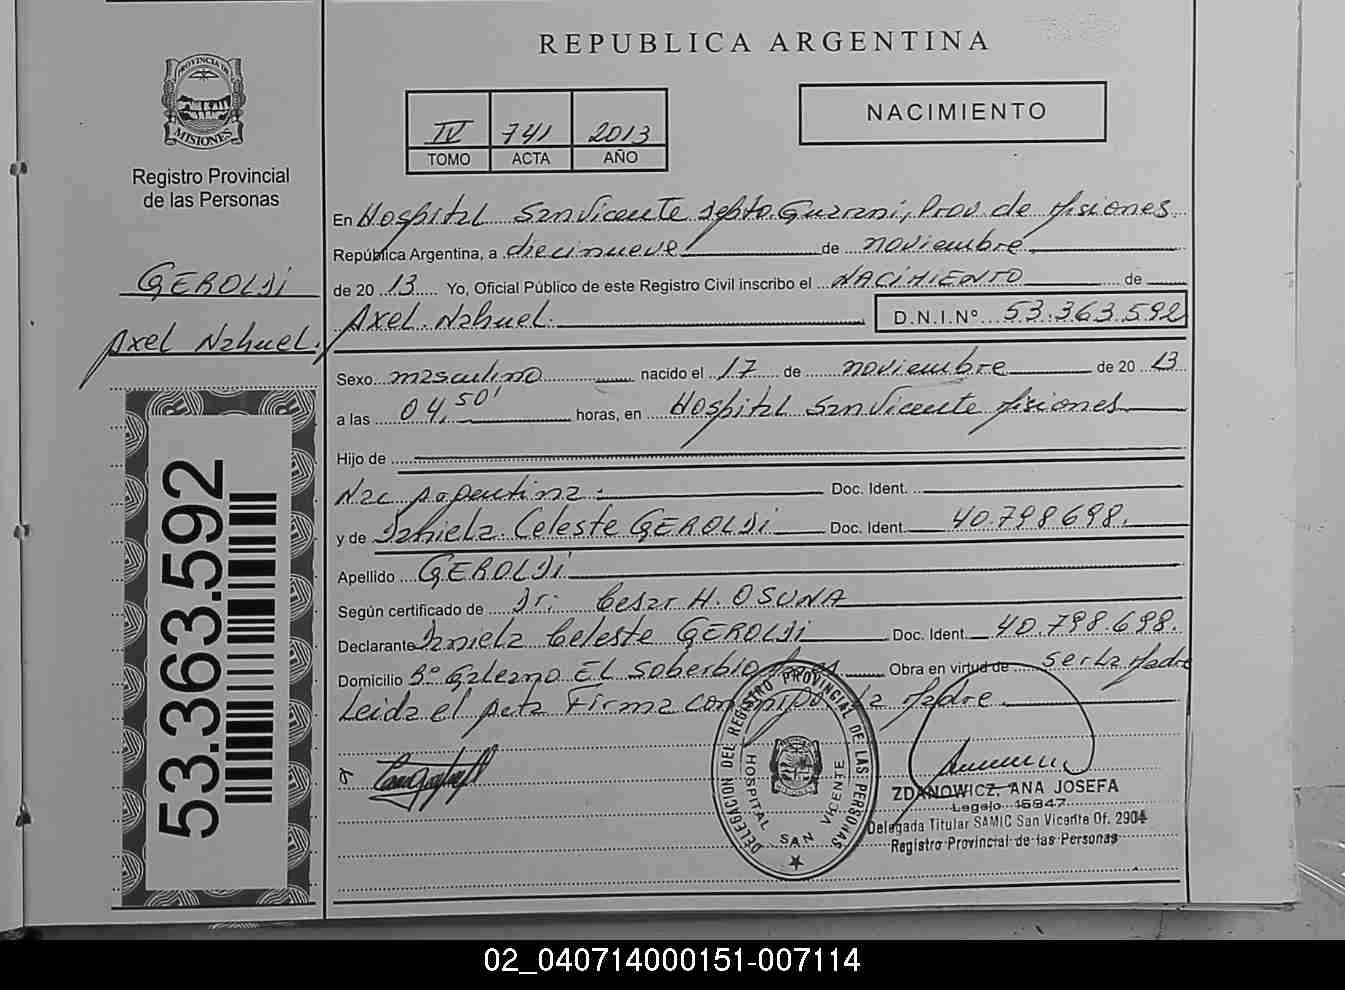 REPUBLICA ARGENTINA
PROVINCIA DE
MISIONES
Registro Provincial
de las Personas
GEROLDI
Axel Nahuel.
53.363.592
IV 741 2013
TOMO ACTA AÑO
NACIMIENTO
En Hospital San Vicente depto. Guarani, Prov. de Misiones
República Argentina, a diecinueve de noviembre
de 20 13 Yo, Oficial Público de este Registro Civil inscribo el NACIMIENTO de
Axel. Nahuel. D.N.I.Nº 53.363.592
Sexo masculino nacido el 17 de noviembre de 20 13
a las 04,50' horas, en Hospital San Vicente Misiones
Hijo de
Nac Argentina. Doc. Ident.
y de Daniela Celeste GEROLDI Doc. Ident. 40.798698.
Apellido GEROLDI
Según certificado de Dr. Cesar H. OSUNA
Declarante Daniela Celeste GEROLDI Doc. Ident. 40.798.698.
Domicilio Bº El Soberbio Obra en virtud de ser la Madre
Leida el Acta Firma conmigo La Madre
DELEGACION DEL REGISTRO PROVINCIAL DE LAS PERSONAS
HOSPITAL SAN VICENTE
ZDANOWICZ, ANA JOSEFA
Legajo 15847
Delegada Titular SAMIC San Vicente Of. 2904
Registro Provincial de las Personas
02_040714000151-007114